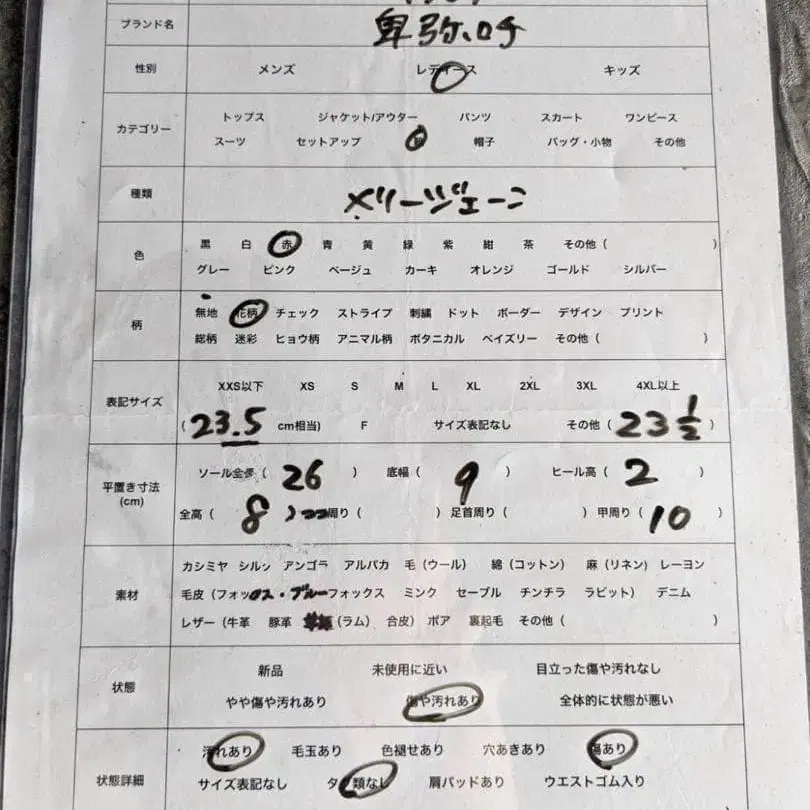 ブランド名 卑弥呼
性別 メンズ レディース キッズ
カテゴリー トップス ジャケット/アウター パンツ スカート ワンピース
スーツ セットアップ 帽子 バッグ・小物 その他
種類 メリージェーン
色 黒 白 赤 青 黄 緑 紫 紺 茶 その他（ ）
グレー ピンク ベージュ カーキ オレンジ ゴールド シルバー
柄 無地 花柄 チェック ストライプ 刺繍 ドット ボーダー デザイン プリント
総柄 迷彩 ヒョウ柄 アニマル柄 ボタニカル ペイズリー その他（ ）
表記サイズ XXS以下 XS S M L XL 2XL 3XL 4XL以上
（23.5 cm相当) F サイズ表記なし その他（23 1/2）
平置き寸法 (cm) ソール全長（ 26 ） 底幅（ 9 ） ヒール高（ 2 ）
全高（ 8 ） 周り（ ） 足首周り（ ） 甲周り（ 10 ）
素材 カシミヤ シルク アンゴラ アルパカ 毛（ウール） 綿（コットン） 麻（リネン） レーヨン
毛皮（フォックス・ブルーフォックス ミンク セーブル チンチラ ラビット） デニム
レザー（牛革 豚革 （ラム） 合皮） ボア 裏起毛 その他（ ）
状態 新品 未使用に近い 目立った傷や汚れなし
やや傷や汚れあり 傷や汚れあり 全体的に状態が悪い
状態詳細 汚れあり 毛玉あり 色褪せあり 穴あきあり 傷あり
サイズ表記なし タグ類なし 肩パッドあり ウエストゴム入り